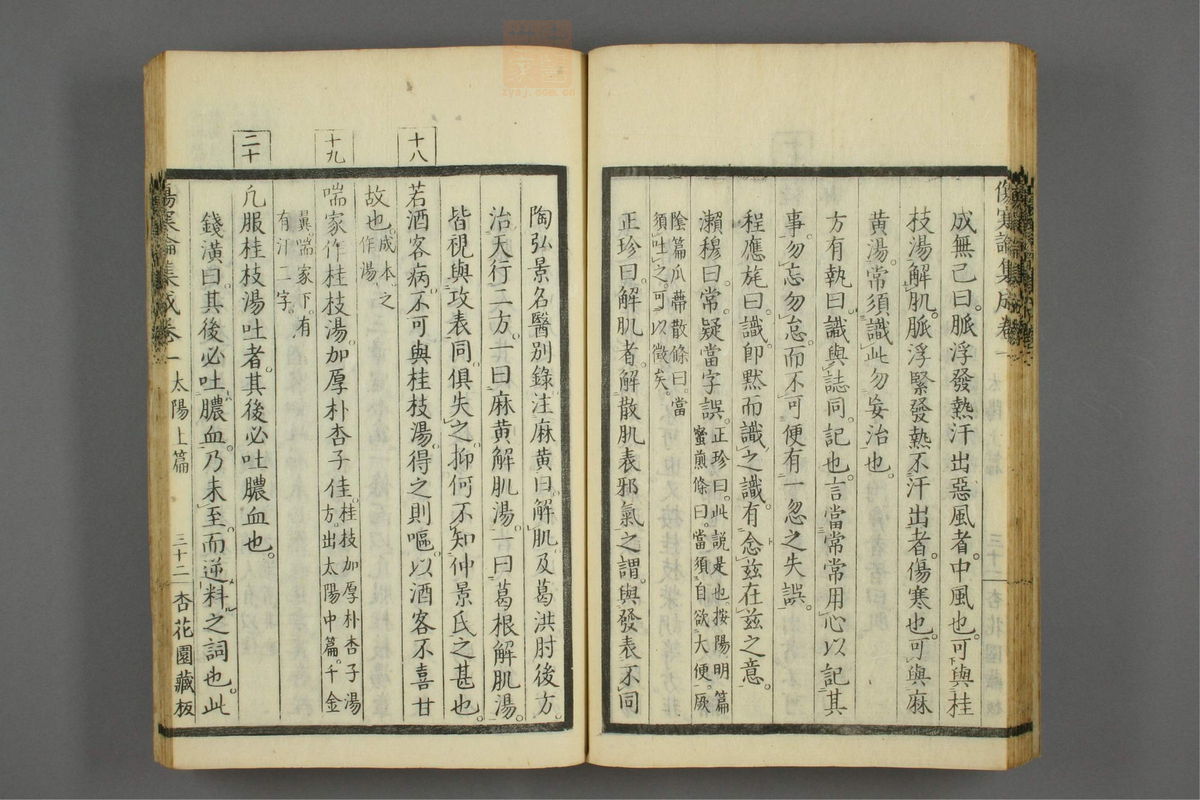 成無己曰。脈浮發熱汗出惡風者。中風也。可與桂
枝湯解肌。脈浮緊發熱不汗出者。傷寒也。可與麻
黄湯。常須識此勿妄治也。
方有執曰。識與誌同。記也。言當常常用心以記其
事。勿忘勿怠。而不可便有一忽之失誤。
程應旄曰。識卽默而識之識。有念茲在茲之意。
瀨穆曰。常。疑當字誤。正珍曰。此說是也。按陽明篇
蜜煎條曰。當須自欲大便。厥
陰篇瓜蔕散條曰。當
須吐之。可以徵矣。
正珍曰。解肌者。解散肌表邪氣之謂。與發表不同
傷寒論集成卷一
陶弘景名醫別錄注。麻黄曰。解肌。及葛洪肘後方。
治天行二方。一曰麻黄解肌湯。一曰葛根解肌湯。
皆視與攻表同。俱失之。抑何不知仲景氏之甚也。
十八
若酒客病。不可與桂枝湯。得之則嘔。以酒客不喜甘
故也。成本之
作湯
十九
喘家作桂枝湯。加厚朴杏子佳。桂枝加厚朴杏子湯
方。出太陽中篇。千金
翼喘家下。有
有汁二字。
二十
凢服桂枝湯吐者。其後必吐膿血也。
錢潢曰。其後必吐膿血。乃未至而逆料之詞也。此
傷寒論集成卷一 太陽上篇 三十二 杏花園藏板
zysj.com.cn